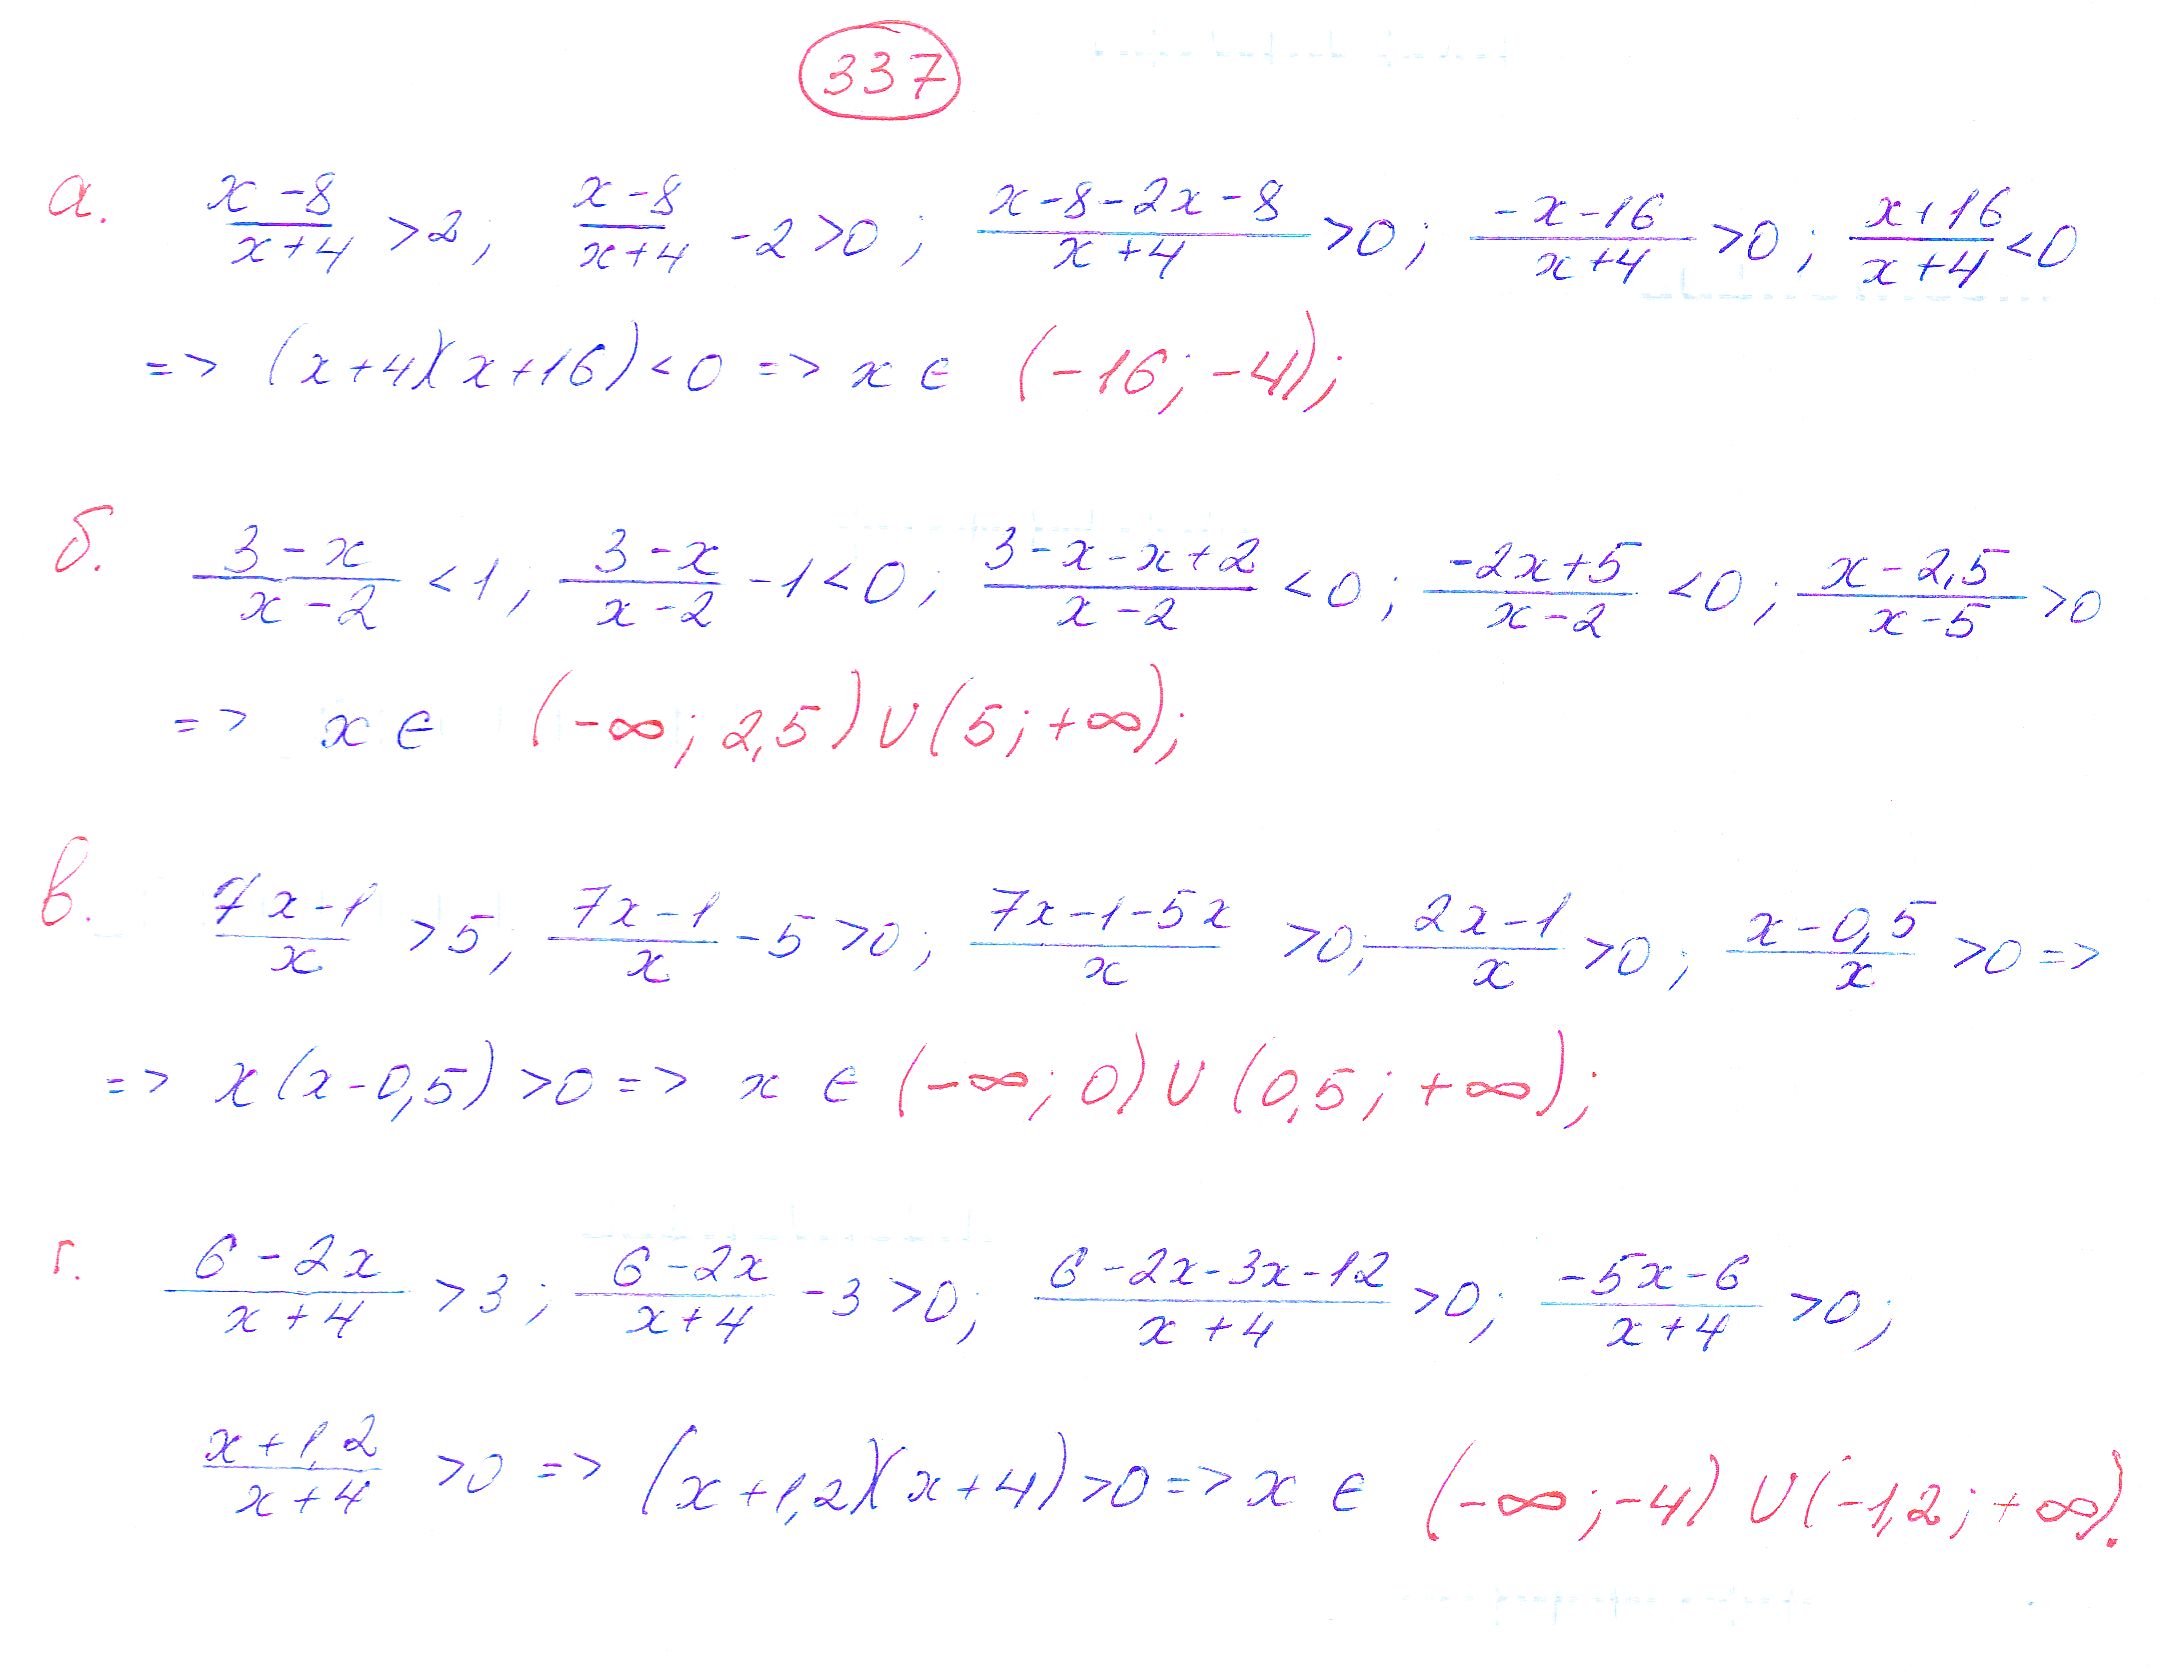 337
а. (x-8)/(x+4) >2; (x-8)/(x+4) -2>0; (x-8-2x-8)/(x+4) >0; (-x-16)/(x+4) >0; (x+16)/(x+4) <0
=> (x+4)(x+16)<0 => x ∈ (-16; -4);
б. (3-x)/(x-2) <1; (3-x)/(x-2) -1<0; (3-x-x+2)/(x-2) <0; (-2x+5)/(x-2) <0; (x-2,5)/(x-5) >0
=> x ∈ (-∞; 2,5) ∪ (5; +∞);
в. (7x-1)/x >5; (7x-1)/x -5>0; (7x-1-5x)/x >0; (2x-1)/x >0; (x-0,5)/x >0 =>
=> x(x-0,5) >0 => x ∈ (-∞; 0) ∪ (0,5; +∞);
г. (6-2x)/(x+4) >3; (6-2x)/(x+4) -3>0; (6-2x-3x-12)/(x+4) >0; (-5x-6)/(x+4) >0;
(x+1,2)/(x+4) >0 => (x+1,2)(x+4)>0 => x ∈ (-∞; -4) ∪ (-1,2; +∞).